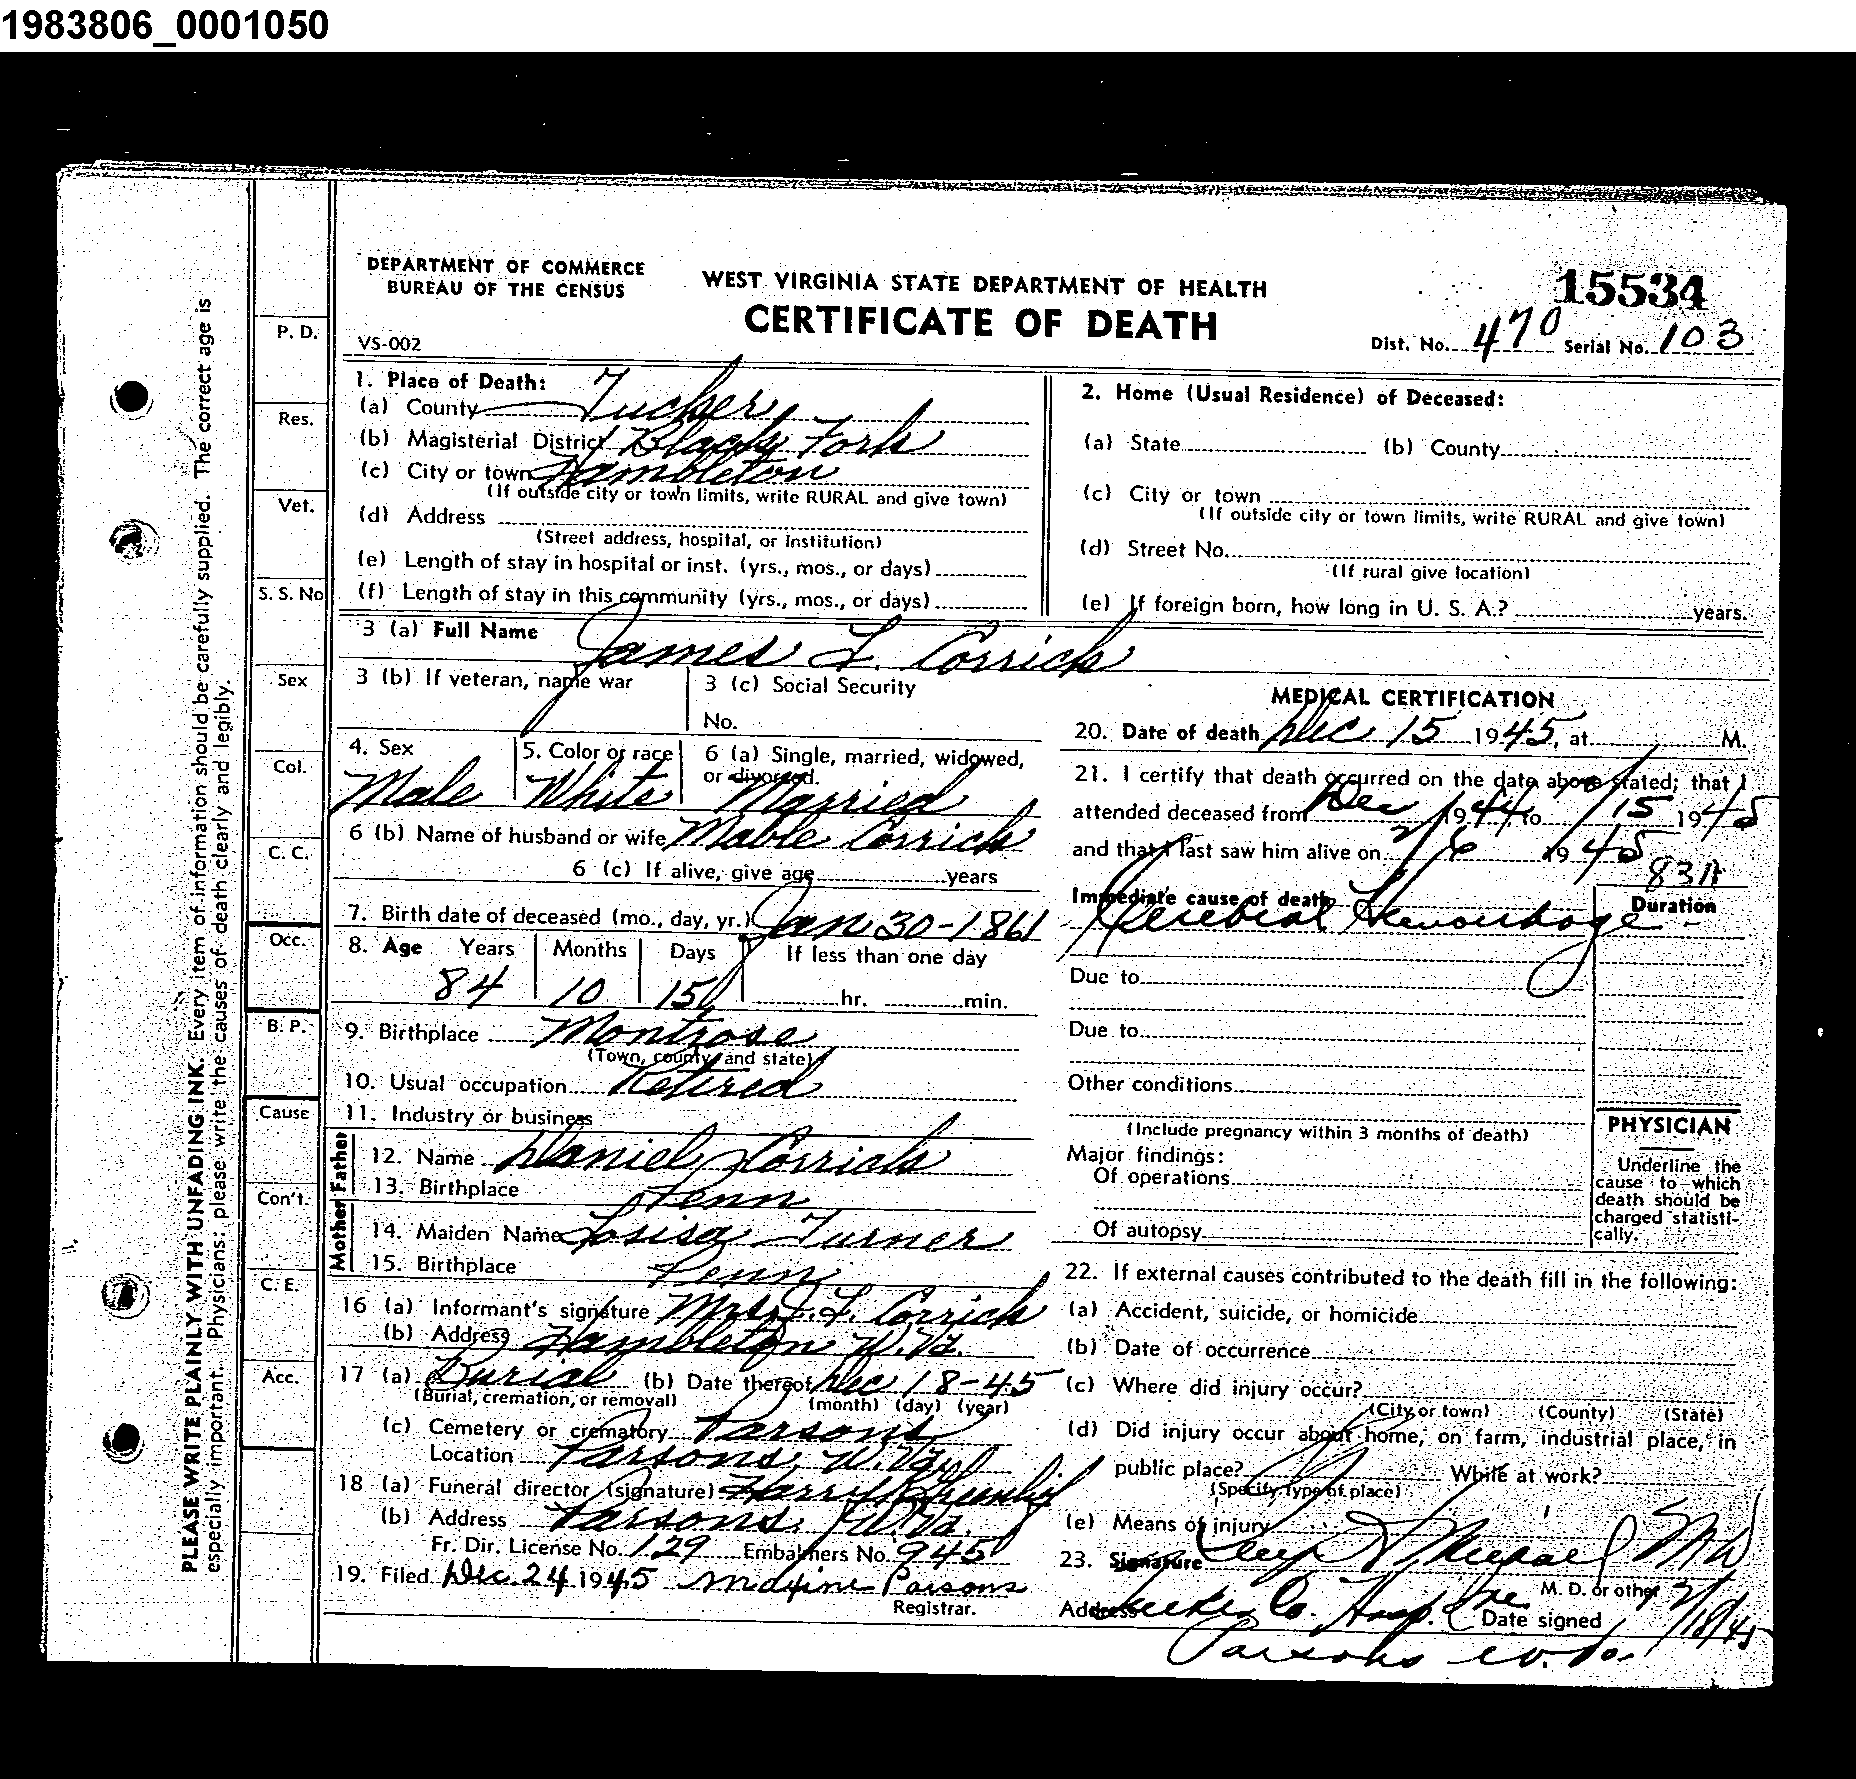 1983806_0001050
DEPARTMENT OF COMMERCE
BUREAU OF THE CENSUS
WEST VIRGINIA STATE DEPARTMENT OF HEALTH
CERTIFICATE OF DEATH
15534
VS-002
Dist. No. 470 Serial No. 103
PLEASE WRITE PLAINLY WITH UNFADING INK. Every item of information should be carefully supplied. The correct age is
especially important. Physicians: please write the causes of death clearly and legibly.
P. D.
Res.
Vet.
S. S. No
Sex
Col.
C. C.
Occ.
B. P.
Cause
Con't.
C. E.
Acc.
1. Place of Death:
(a) County Tucker
(b) Magisterial District Black Fork
(c) City or town Hambleton
(If outside city or town limits, write RURAL and give town)
(d) Address
(Street address, hospital, or institution)
(e) Length of stay in hospital or inst. (yrs., mos., or days)
(f) Length of stay in this community (yrs., mos., or days)
2. Home (Usual Residence) of Deceased:
(a) State (b) County
(c) City or town
(If outside city or town limits, write RURAL and give town)
(d) Street No.
(If rural give location)
(e) If foreign born, how long in U. S. A.? years.
3 (a) Full Name James L. Corrick
3 (b) If veteran, name war
3 (c) Social Security
No.
4. Sex Male
5. Color or race White
6 (a) Single, married, widowed,
or divorced. Married
6 (b) Name of husband or wife Mable Corrick
6 (c) If alive, give age years
7. Birth date of deceased (mo., day, yr.) Jan 30-1861
8. Age Years Months Days If less than one day
84 10 15 hr. min.
9. Birthplace Montrose
(Town, county and state)
10. Usual occupation Retired
11. Industry or business
Father
12. Name Daniel Corrick
13. Birthplace Penn
Mother
14. Maiden Name Losisa Turner
15. Birthplace Penn
16 (a) Informant's signature Mrs J. L. Corrick
(b) Address Hambleton W. Va.
17 (a) Burial (b) Date thereof Dec 18-45
(Burial, cremation, or removal) (month) (day) (year)
(c) Cemetery or crematory Parsons
Location Parsons, W. Va.
18 (a) Funeral director (signature) Harry
(b) Address Parsons, W. Va.
Fr. Dir. License No. 129 Embalmers No. 945
19. Filed Dec. 24 1945 Maxine Parsons
Registrar.
MEDICAL CERTIFICATION
20. Date of death Dec 15 1945, at M.
21. I certify that death occurred on the date above stated; that I
attended deceased from Dec 1944 to 15 1945
and that I last saw him alive on 6 1945
83A
Immediate cause of death Cerebral Hemorrhage
Duration
Due to
Due to
Other conditions
(Include pregnancy within 3 months of death)
Major findings:
Of operations
Of autopsy
PHYSICIAN
Underline the
cause to which
death should be
charged statisti-
cally.
22. If external causes contributed to the death fill in the following:
(a) Accident, suicide, or homicide
(b) Date of occurrence
(c) Where did injury occur?
(City or town) (County) (State)
(d) Did injury occur about home, on farm, industrial place, in
public place? While at work?
(Specify type of place)
(e) Means of injury
23. Signature MD
M. D. or other
Address Tucker Co. Hosp. Date signed 18/45
Parsons W. Va.